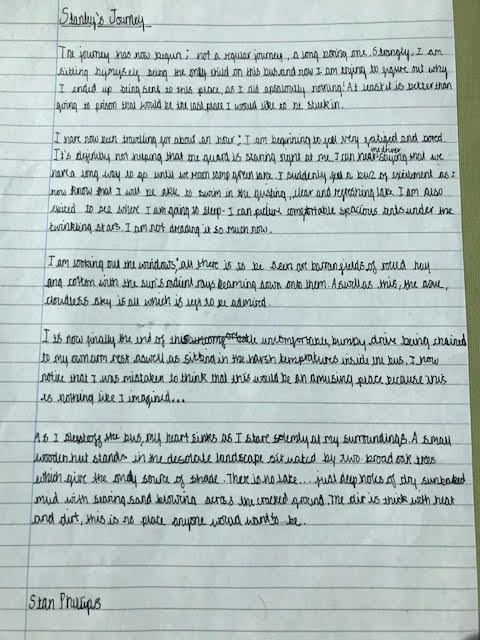 Stanley's Journey
The journey has now begun; not a regular journey, a long boring one. Strangly, I am
sitting bymyself being the only child on this bus and now I am trying to figure out why
I ended up being sent to this place, as I did absolutely nothing! At least it is better than
going to prison that would be the last place I would like to be stuck in.
I have now been travelling for about an hour; I am beginning to fell very fatiged and bored.
It's definitley not helping that the guard is staring right at me. I can hear the driver saying that we
have a long way to go until we reach camp green lake. I suddenly feel a buz of excitement as I
now know that I will be able to swim in the gushing, clear and refreshing lake. I am also
excited to see where I am going to sleep - I can picture comfortable spacious tents under the
twinkling stars. I am not dreading it so much now.
I am looking out the windows; all there is to be seen are barren fields of rolled hay
and cotton with the sun's radient rays beaming down onto them. Aswell as this, the azure,
cloudless sky is all which is left to be admired.
It is now finally the end of this uncomfortable, bumpy drive being chained
to my own arm rest aswell as sitting in the harsh tempratures inside the bus. I now
notice that I was mistaken to think that this would be an amusing place because this
is nothing like I imagined...
As I step off the bus, my heart sinks as I stare solemly at my surroundings. A small
wooden hut stands in the desolate landscape situated by two broad oak trees
which give the only source of shade. There is no lake... just deep holes of dry sunbaked
mud with searing sand blowing across the cracked ground. The air is thick with heat
and dirt, this is no place anyone would want to be.
Stan Phillips